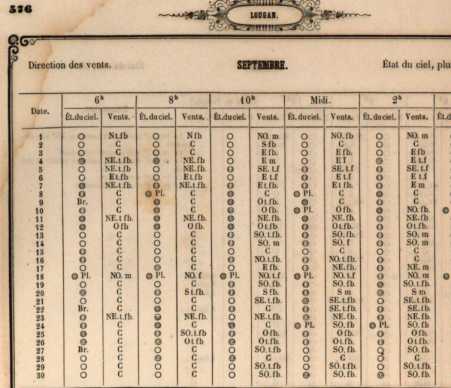 576
LOUGAN.
Direction des vents. SEPTEMBRE. État du ciel, plu
Date. 6h 8h 10h Midi. 2h
Ét.du ciel. Vents. Ét.du ciel. Vents. Ét.du ciel. Vents. Ét.du ciel. Vents. Ét.du ciel. Vents. Ét.d
1 ○ N t.fb ○ N fb ○ NO. m ○ NO. fb ○ NO. m
2 ○ C ○ C ○ S fb ○ C ○ C
3 ○ C ○ C ○ E fb. ○ E fb. ○ E fb
4 NE.t.fb NE.fb E m E f E t.f
5 NE.t.fb ○ NE.fb SE. t.f SE. t.f E t.f
6 ○ E t.fb ○ E t.fb E t.f E t.f E t.f
7 NE.t.fb NE.t.fb E t.fb. E t.fb. E m
8 C Pl. C C Pl. C C
9 Br. C C O t.fb. C C
10 C C O fb. Pl. O fb. NO. fb.
11 NE.t.fb NE.fb. NE.fb. NE.fb. NE.fb.
12 O fb O fb. O t.fb. O t.fb. O t.fb.
13 C C SO. t.fb. SO. fb. SO. m
14 ○ C ○ C SO. m SO. f SO. m
15 C C C C C
16 C C NO. t.fb. NO. t.fb. C
17 C C E fb. NE.fb. NE. m
18 Pl. NO. m Pl. NO. f Pl. NO. t.f Pl. NO. t.f NO. m
19 C C SO. fb. SO. fb. SO. t.fb.
20 C S t.fb. S fb. S m S m
21 C C SE. t.fb SE. t.fb SE. t.fb.
22 Br. C C SE. t.fb. SE. fb. SE. fb.
23 NE.t.fb. NE.fb. NE.t.fb. NE.fb. NE.fb.
24 C C C Pl. SO. fb Pl. SO. fb
25 C SO. t.fb O fb. O fb. O fb.
26 C O t.fb O t.fb. O t.fb. O fb.
27 Br. C C SO. t.fb SO. fb. SO. fb.
28 C C C C C
29 ○ C C SO. t.fb SO. fb. SO. t.fb
30 C C SO. fb. SO. fb. SO. fb.